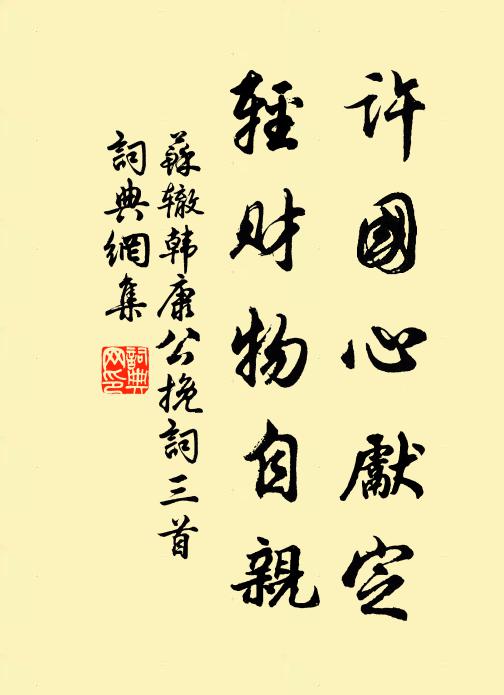 許國心獻定
輕財物自親
蘇辙韩康公挽詞三首
詞典網集
詞典
网印